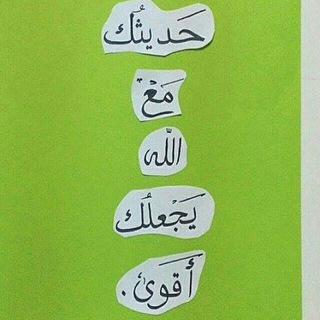 حَديثُك
مَعْ
اللّه
يَجْعلُك
أَقوَىٰ.